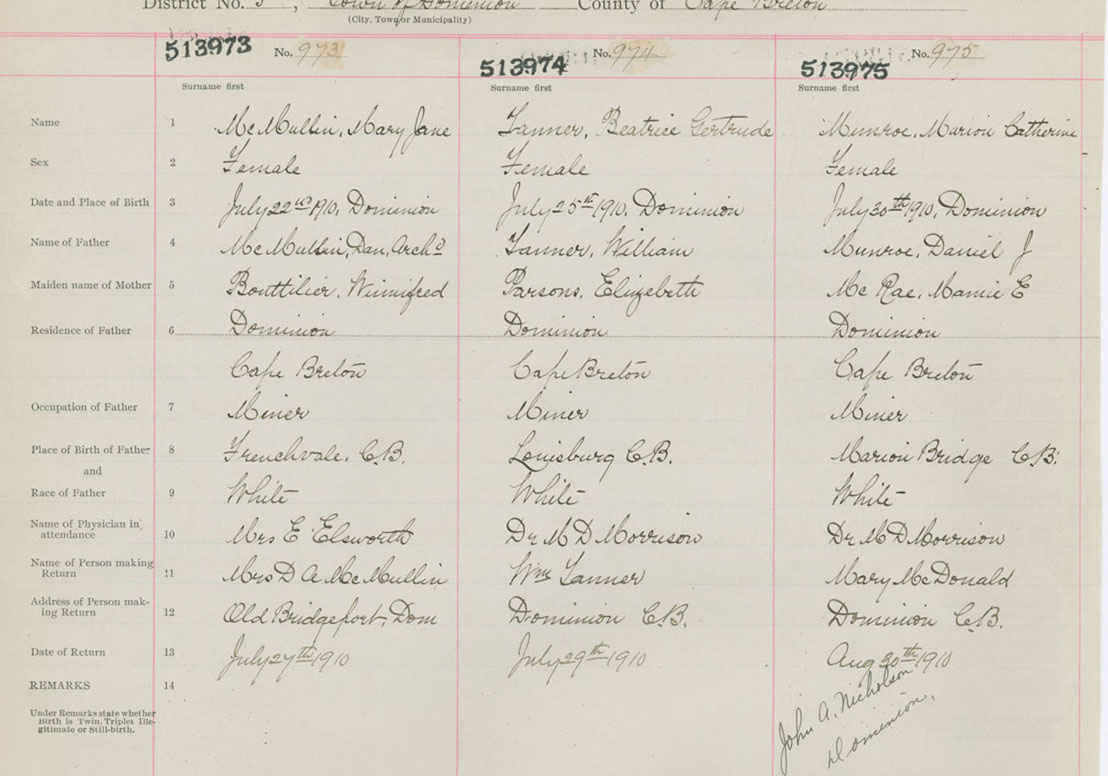 District No. 5, Town of Dominion County of Cape Breton
(City, Town or Municipality)
513973 No. 973 513974 No. 974 513975 No. 975
Surname first Surname first Surname first
Name 1 McMullin, Mary Jane Tanner, Beatrice Gertrude Munroe, Marion Catherine
Sex 2 Female Female Female
Date and Place of Birth 3 July 22nd 1910, Dominion July 25th 1910, Dominion July 30th 1910, Dominion
Name of Father 4 McMullin, Dan, Archd Tanner, William Munroe, Daniel J
Maiden name of Mother 5 Bouttilier, Winnifred Parsons, Elizebeth McRae, Mamie E
Residence of Father 6 Dominion Dominion Dominion
Cape Breton Cape Breton Cape Breton
Occupation of Father 7 Miner Miner Miner
Place of Birth of Father 8 Frenchvale, C.B. Louisburg C.B. Marion Bridge C.B.
and
Race of Father 9 White White White
Name of Physician in attendance 10 Mrs E Elsworth Dr M D Morrison Dr M D Morrison
Name of Person making Return 11 Mrs D A McMullin Wm Tanner Mary McDonald
Address of Person mak-ing Return 12 Old Bridgeport, Dom Dominion C.B. Dominion C.B.
Date of Return 13 July 27th 1910 July 29th 1910 Aug 30th 1910
REMARKS 14
Under Remarks state whether
Birth is Twin, Triplet Ille-
gitimate or Still-birth.
John A. Nicholson
Dominion.